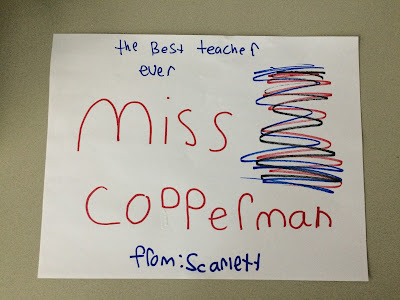 the Best teacher
ever
Miss
Copperman
from: Scarlett